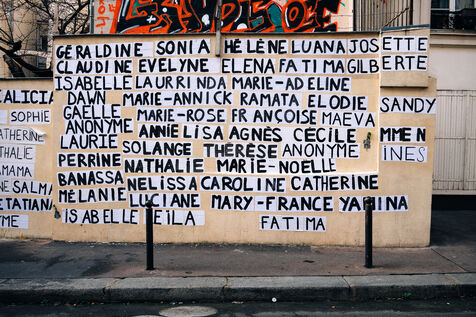 GÉRALDINE SONIA HÉLÈNE LUANA JOSETTE
CLAUDINE EVELYNE ELENA FATIMA GILBERTE
ISABELLE LAURINDA MARIE-ADELINE
ALICIA DAWN MARIE-ANNICK RAMATA ELODIE SANDY
SOPHIE GAELLE MARIE-ROSE FRANÇOISE MAEVA
CATHERINE ANONYME ANNIE LISA AGNÈS CÉCILE MMEN
THALIE LAURIE SOLANGE THÉRÈSE ANONYME INES
MAMA PERRINE NATHALIE MARIE-NOËLLE
NE SALMA BANASSA NELISSA CAROLINE CATHERINE
ETATIANA MÉLANIE LUCIANE MARY-FRANCE YAMINA
ME ISABELLE LEILA FATIMA